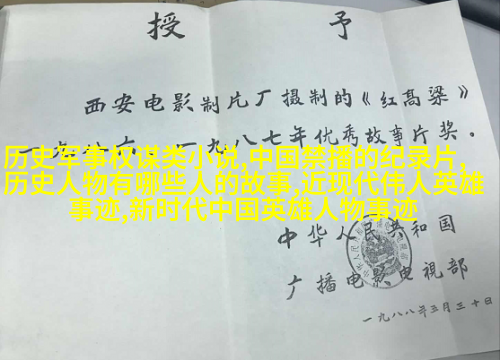 授予
西安电影制片厂摄制的《红高粱》
一九八六—一九八七年优秀故事片奖。
历史军事权谋类小说,中国禁播的纪录片,
历史人物有哪些人的故事,近现代伟人英雄
事迹,新时代中国英雄人物事迹
中华人民共和国
广播电影电视部
一九八八年三月三十日